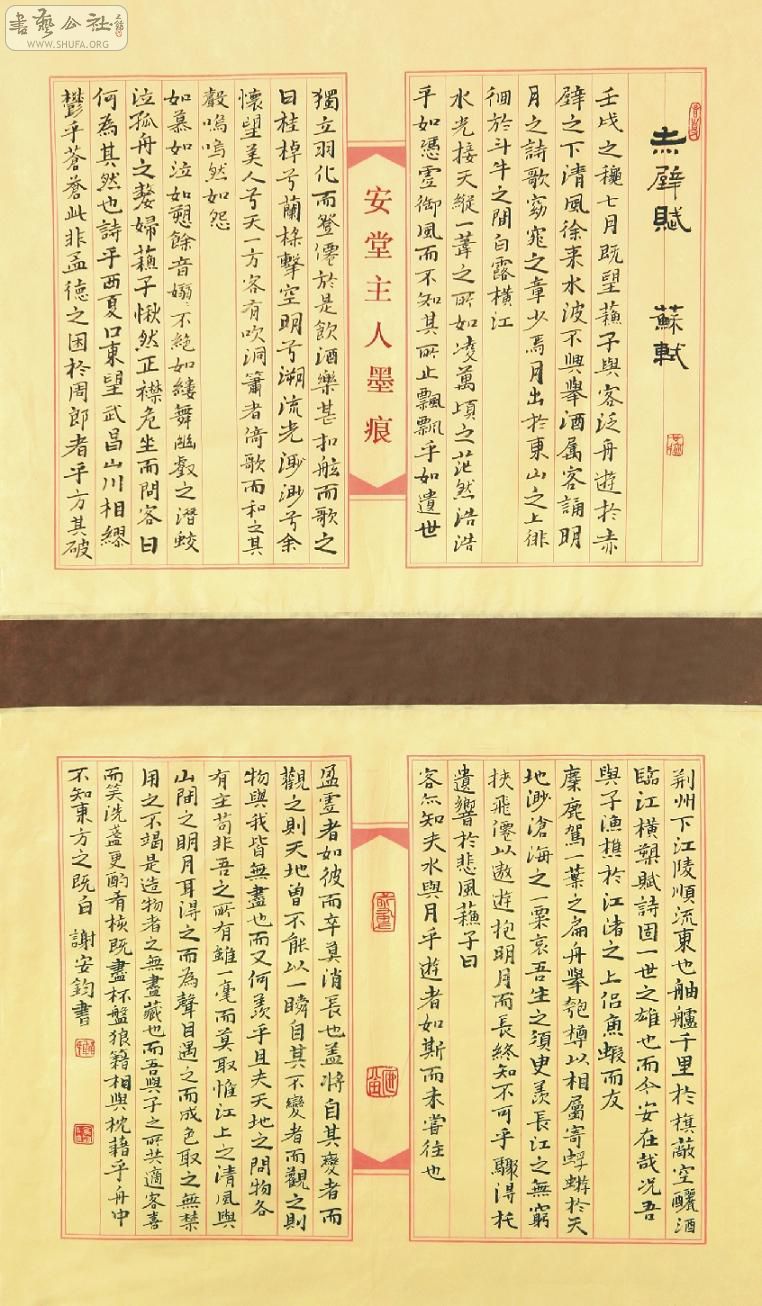 書藝公社
WWW.SHUFA.ORG
赤壁賦 蘇軾
壬戌之穐七月既望蘓子與客泛舟遊於赤
壁之下清風徐来水波不興舉酒属客誦明
月之詩歌窈窕之章少焉月出於東山之上徘
徊於斗牛之間白露横江
水光接天縱一葦之所如淩萬頃之茫然浩浩
乎如憑虛御風而不知其所止飄飄乎如遺世
安堂主人墨痕
獨立羽化而登僊於是飲酒樂甚扣舷而歌之
曰桂棹兮蘭槳擊空明兮溯流光渺渺兮余
懷望美人兮天一方客有吹洞簫者倚歌而和之其
聲嗚嗚然如怨
如慕如泣如愬餘音嫋不絶如縷舞幽壑之潛蛟
泣孤舟之嫠婦蘓子愀然正襟危坐而問客曰
何為其然也詩乎西夏口東望武昌山川相繆
鬱乎蒼蒼此非孟德之困於周郎者乎方其破
荆州下江陵順流東也舳艫千里於旗蔽空釃酒
臨江横槊賦詩固一世之雄也而今安在哉况吾
與子漁樵於江渚之上侣魚蝦而友
麋鹿駕一葉之扁舟舉匏樽以相屬寄蜉蝣於天
地渺滄海之一粟哀吾生之須臾羨長江之無窮
挾飛僊以遨遊抱明月而長終知不可乎驟得托
遺響於悲風蘓子曰
客亦知夫水與月乎遊者如斯而未嘗往也
盈虛者如彼而卒莫消長也盖將自其變者而
觀之則天地曾不能以一瞬自其不變者而觀之則
物與我皆無盡也而又何羨乎且夫天地之間物各
有主苟非吾之所有雖一毫而莫取惟江上之清風與
山間之明月耳得之而為聲目遇之而成色取之無禁
用之不竭是造物者之無盡藏也而吾與子之所共適客喜
而笑洗盞更酌肴核既盡杯盤狼籍相與枕藉乎舟中
不知東方之既白 謝安鈞書